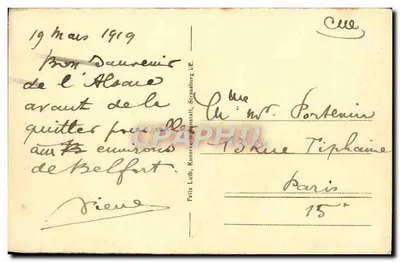 19 Mars 1919
Bon Souvenir
de l'Alsace
avant de la
quitter pour aller
aux environs
de Belfort.
Pierre
Felix Luib, Kunstverlagsanstalt, Strassburg i. E.
Mme Mr Portenin
13 Rue Tiphaine
Paris
15e
CPARHIF